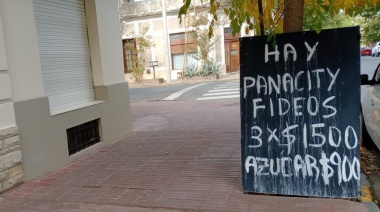 HAY
PANACITY
FIDEOS
3X$1500
AZUCAR$900